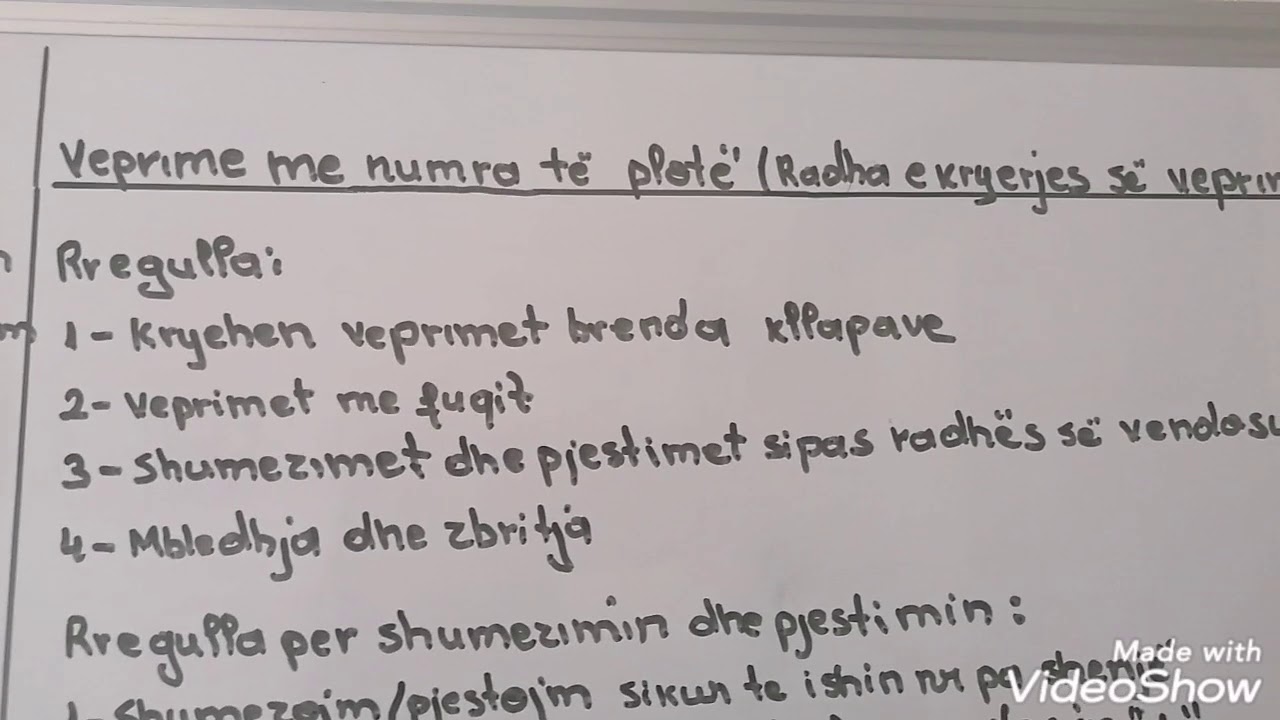 Veprime me numra të plotë (Radha e kryerjes së veprim
Rregulla:
1- Kryehen veprimet brenda kllapave
2- Veprimet me fuqit
3- Shumezimet dhe pjestimet sipas radhës së vendosu
4- Mbledhja dhe zbritja
Rregulla per shumezimin dhe pjestimin:
1- Shumezojm/pjestojm sikur te ishin nr pa shenjë
Made with
VideoShow